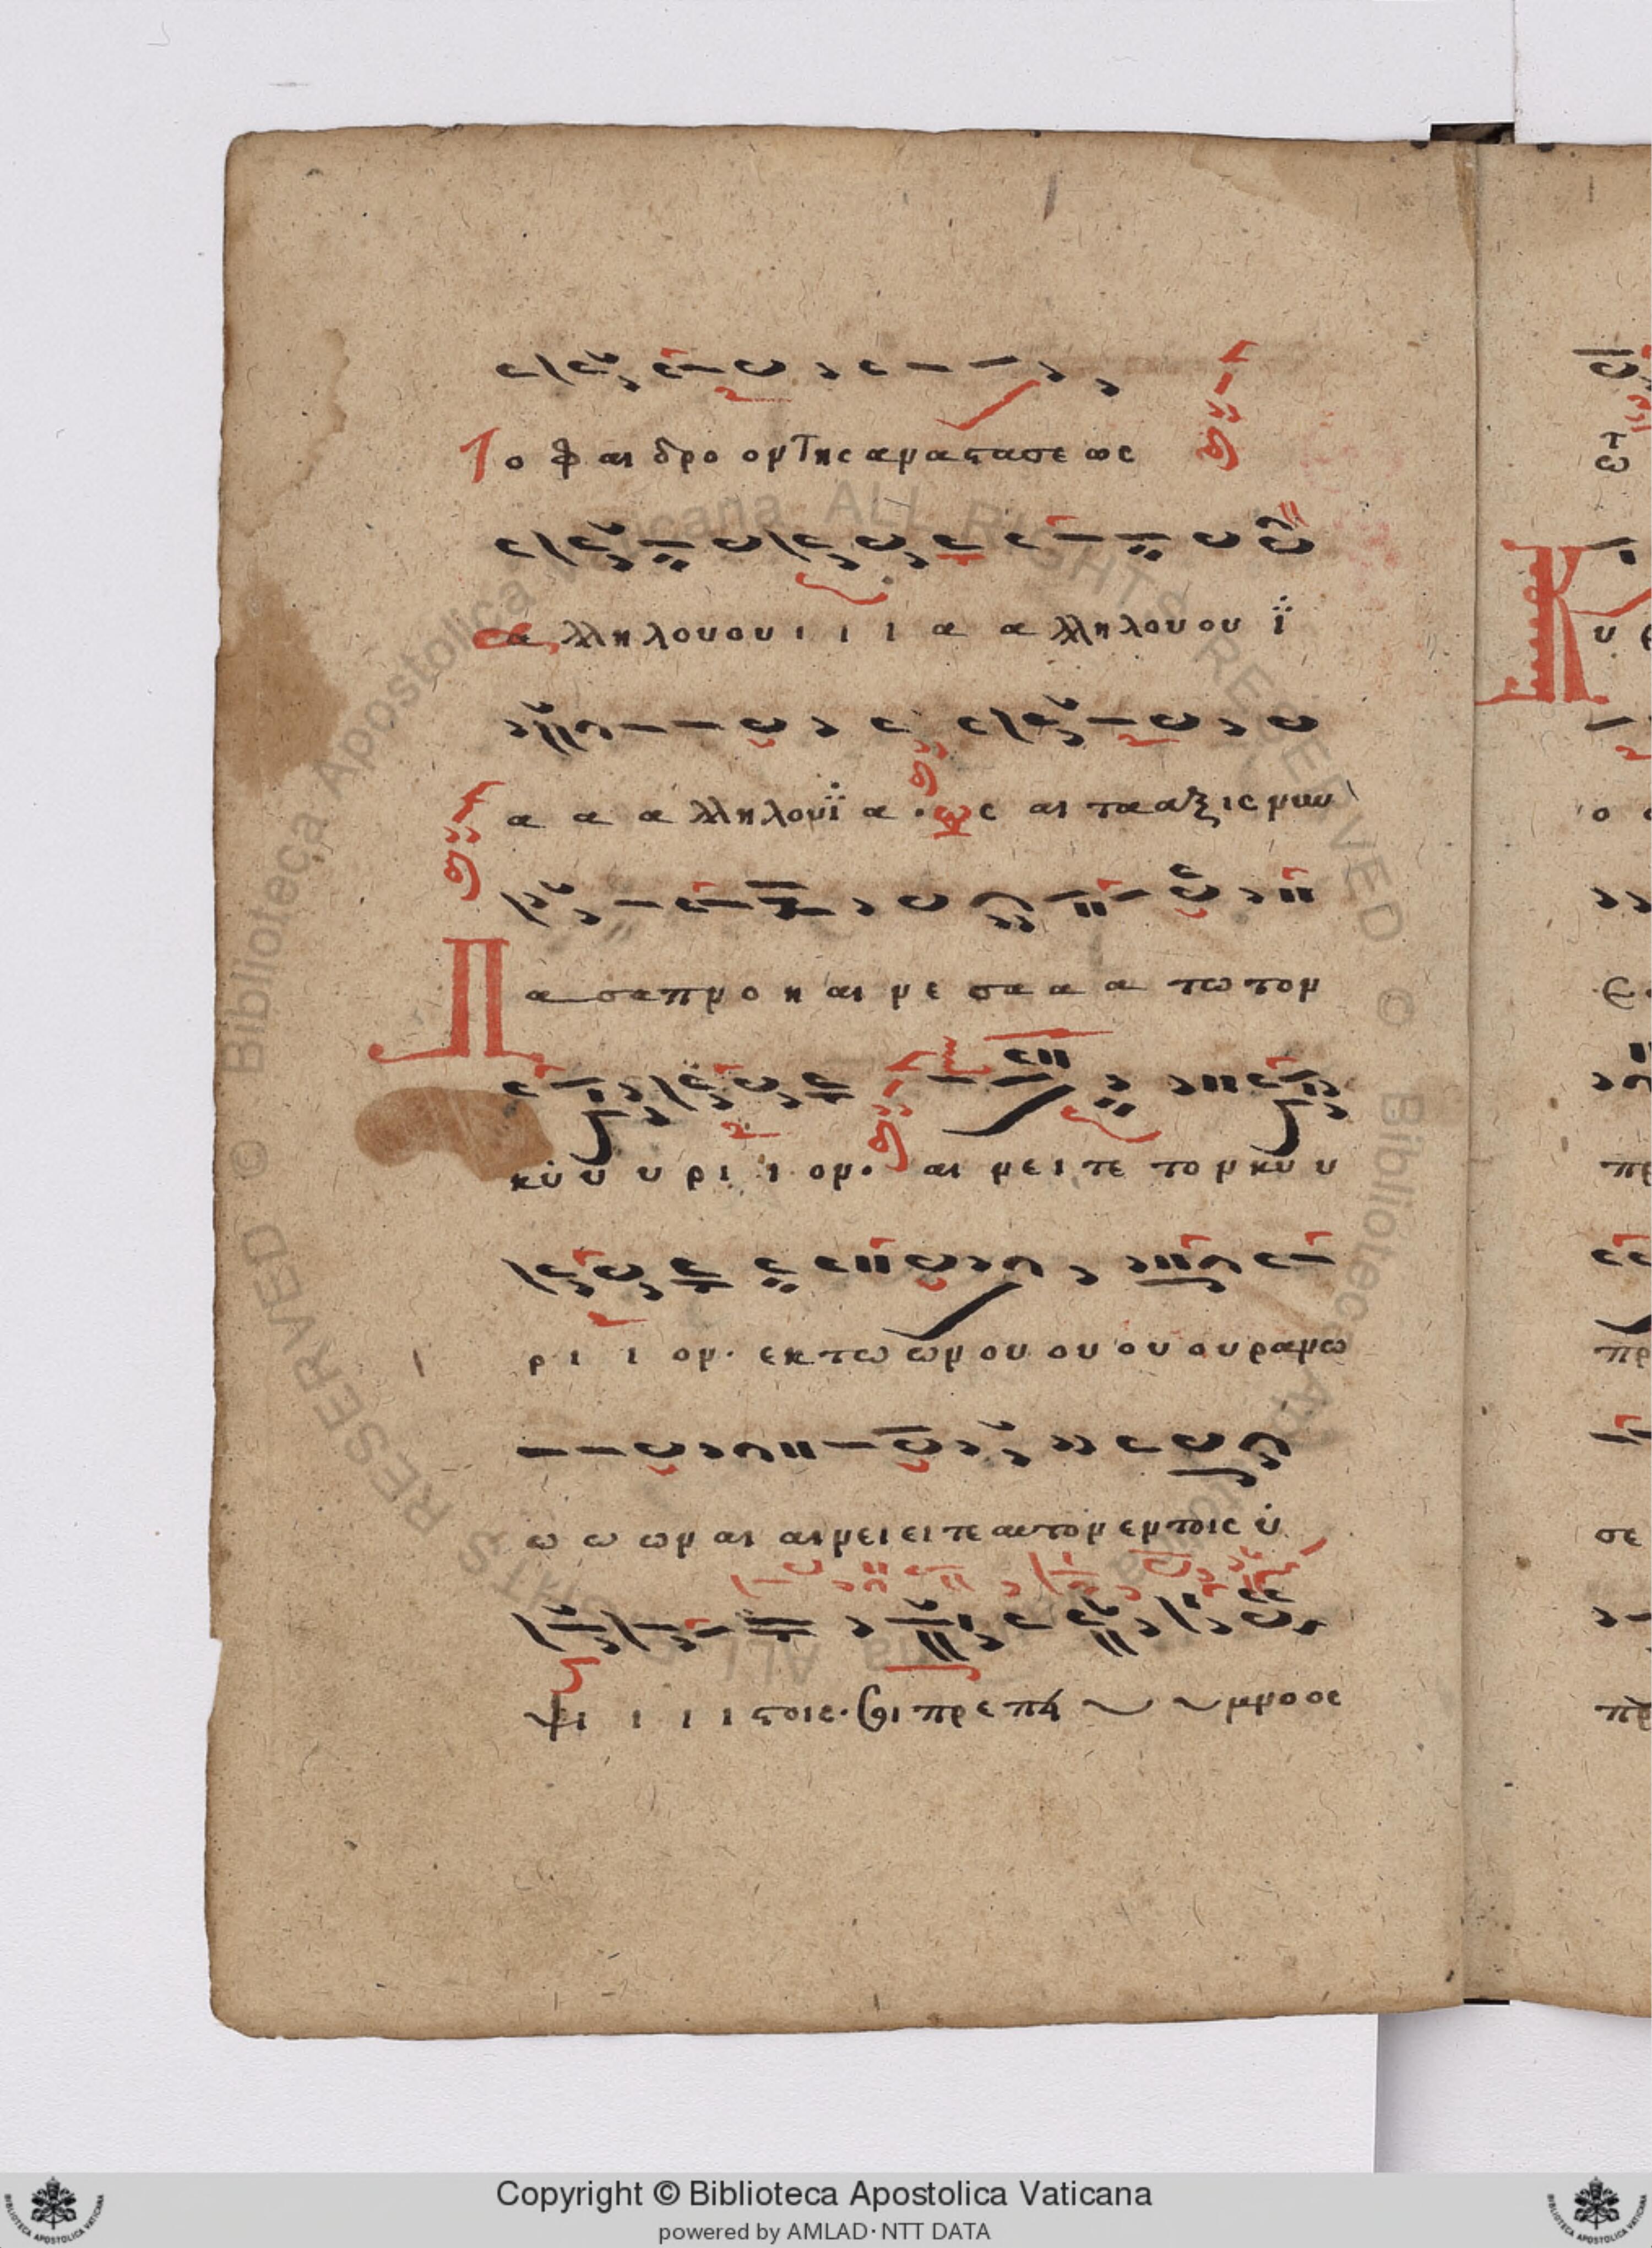 Το φαι δρο ον της αναστασε ως
α λληλουου ι ι ι α α λληλουου ϊ
α α α λληλουϊ α · ως αι τα αξις μων
Πα σαπνο η αι νε σα α α τω τον
κυ υ υ ρι ι ι ον. αι νει τε τον κυ υ
ρι ι ι ον. εκ τω ων ου ου ου ουρανω
ω ω ων αι αινει ει τε αυτον εν τοις υ
ψι ι ι ι στοις. Σοι πρε πει υ υμνοος
Copyright © Biblioteca Apostolica Vaticana
powered by AMLAD·NTT DATA